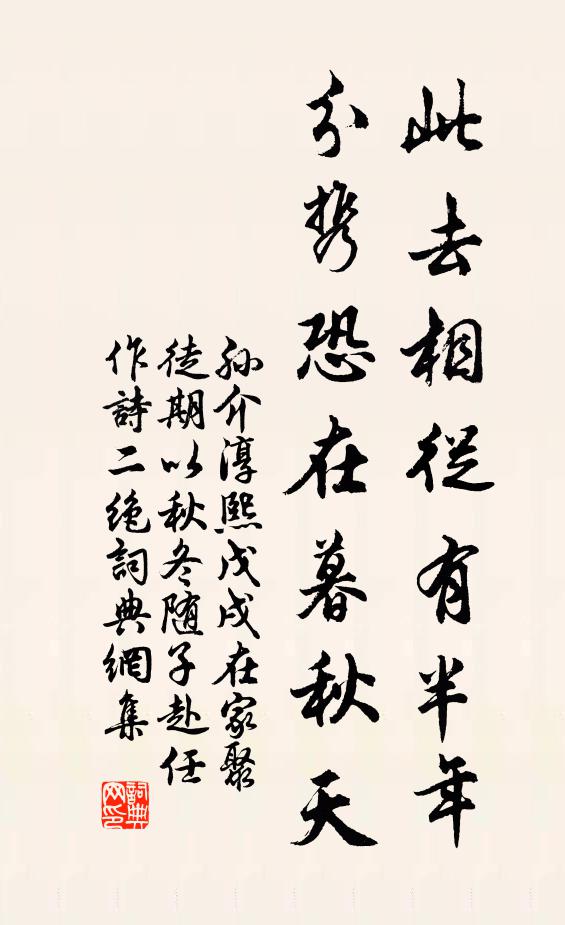 此去相從有半年
分携恐在暮秋天
孫介淳熙戊戌在家聚
徒期以秋冬随子赴任
作詩二絶詞典網集
詞典网印